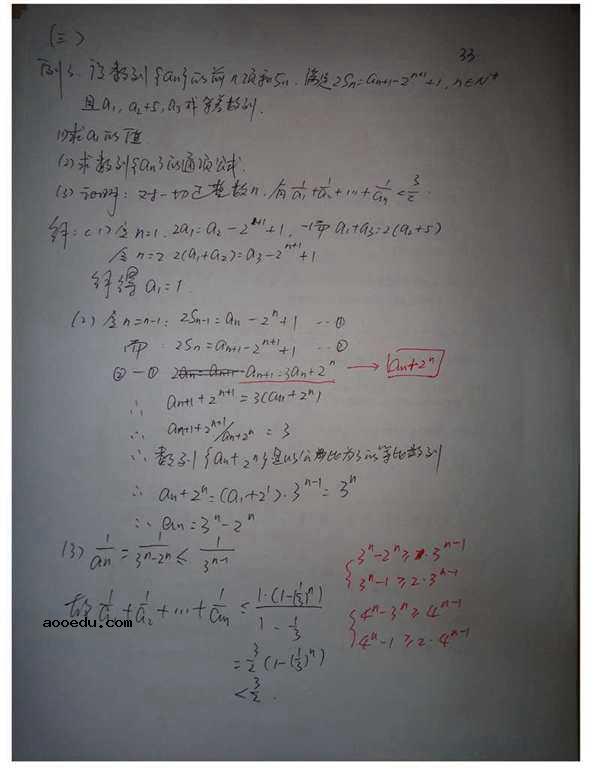 (三)
33
例3. 设数列{an}的前n项和Sn. 满足2Sn=an+1-2^{n+1}+1, n∈N*
且a1, a2+5, a3成等差数列.
(1)求a1的值.
(2)求数列{an}的通项公式.
(3)证明: 对一切正整数n, 有 1/a1+1/a2+…+1/an<3/2.
解:(1)令n=1, 2a1=a2-2^{n+1}+1, 而a1+a3=2(a2+5)
令n=2 2(a1+a2)=a3-2^{n+1}+1
解得 a1=1.
(2) 令n=n-1: 2Sn-1=an-2^n+1 …①
而: 2Sn=an+1-2^{n+1}+1 …②
②-① 2an=an+1 an+1=3an+2^n → an+2^n
∴ an+1+2^{n+1}=3(an+2^n)
∴ an+1+2^{n+1}/an+2^n=3
∴ 数列{an+2^n}是以公比为3的等比数列
∴ an+2^n=(a1+2^1)·3^{n-1}=3^n
∴ an=3^n-2^n
(3) 1/an=1/3^n-2^n≤1/3^{n-1}
3^n-2^n≥3^{n-1}
3^n-1≥2·3^{n-1}
4^n-3^n≥4^{n-1}
4^n-1≥2·4^{n-1}
故1/a1+1/a2+…+1/an≤1·(1-(1/3)^n)/1-1/3
aooedu.com
=3/2(1-(1/3)^n)
<3/2.